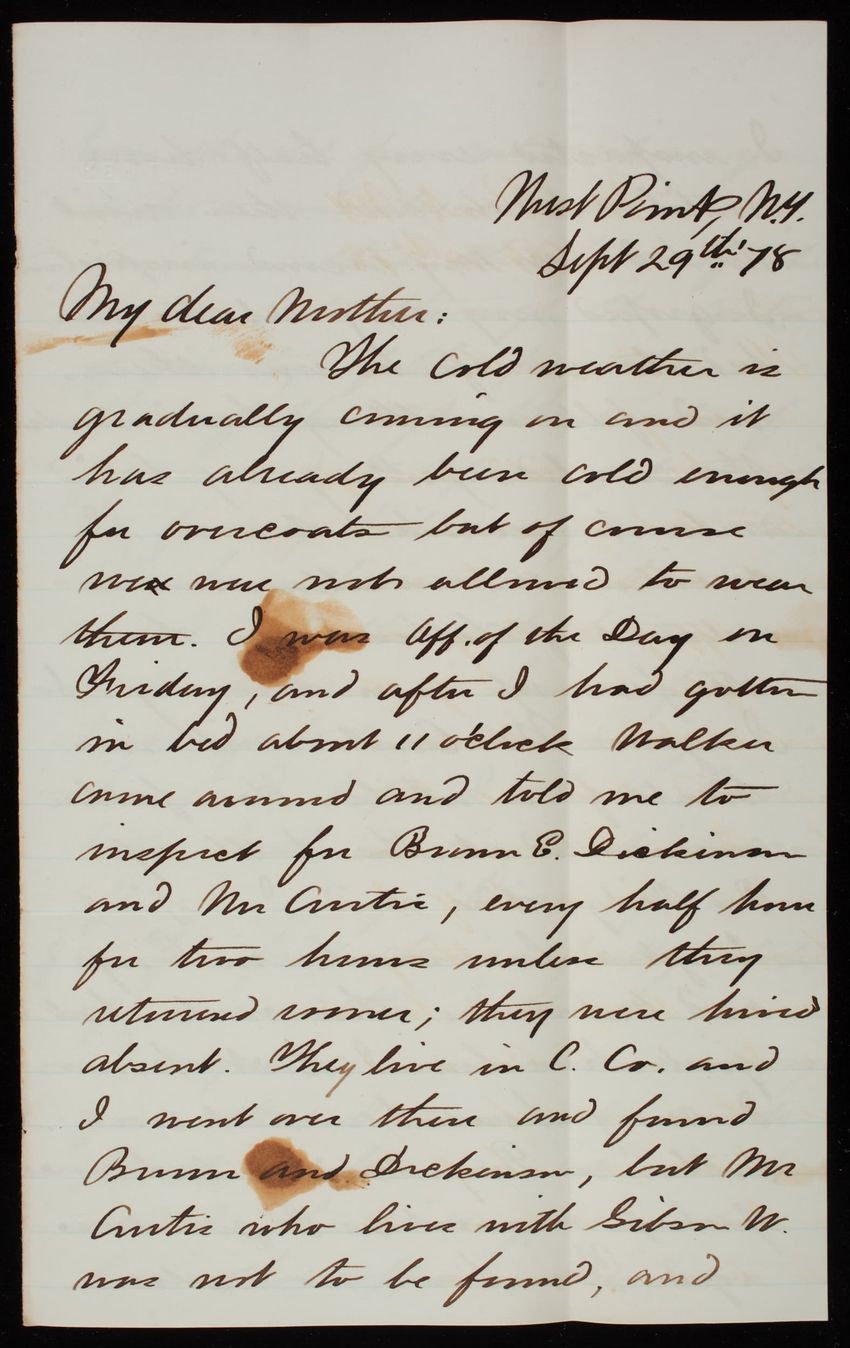 West Point, N.Y.
Sept 29th 78
My dear Mother:
The cold weather is
gradually coming on and it
has already been cold enough
for overcoats but of course
we were not allowed to wear
them. I was Off. of the Day on
Friday, and after I had gotten
in bed about 11 o'clock Walker
came around and told me to
inspect for Brown E. Dickinson
and Mr Curtis, every half hour
for two hours unless they
returned sooner; they were hived
absent. They live in C. Co. and
I went over there and found
Brown and Dickinson, but Mr
Curtis who lives with Gibson W.
was not to be found, and